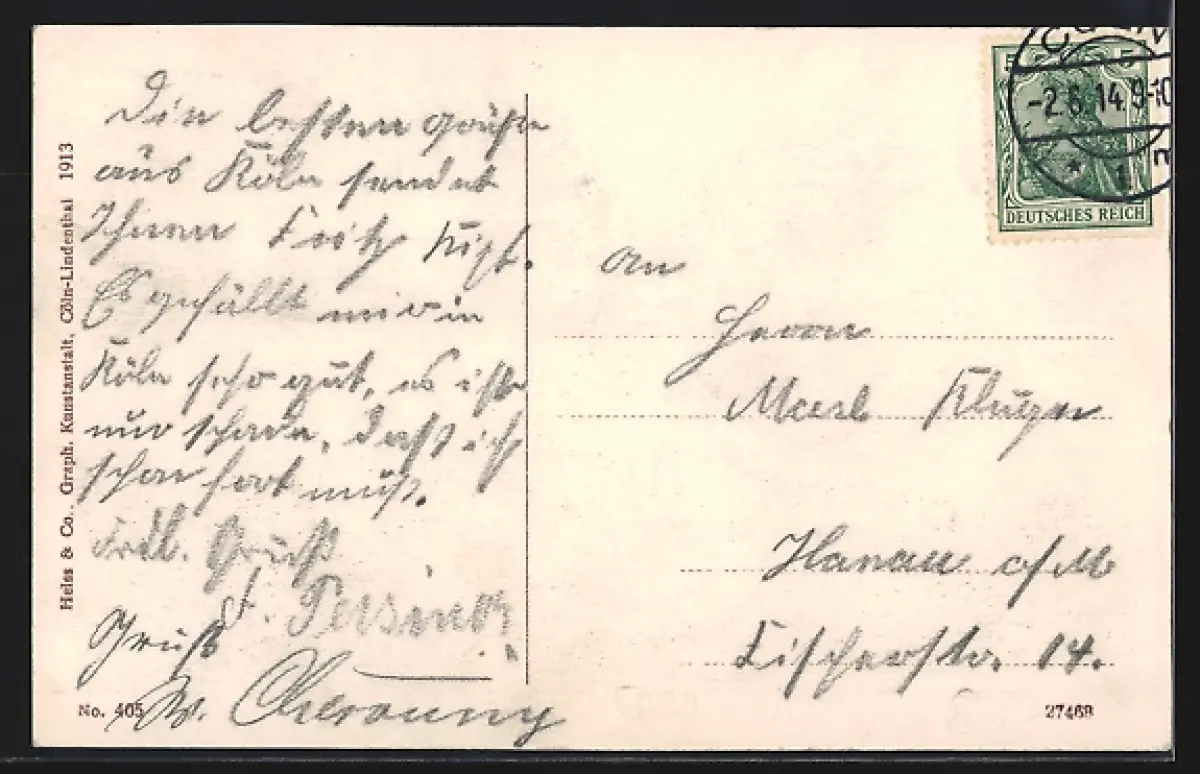 Die besten Grüße
aus Köln sendet
Ihnen Fritz
Es gefällt mir in
Köln sehr gut, es ist
nur schade, daß ich
schon fort muß.
Frdl. Gruß
F.
Gruß
W.
An
Herrn
Kluge
Hanau a/M
Fischerstr. 14.
DEUTSCHES REICH
5 5
-2.6.14.9-10
Heiss & Co., Graph. Kunstanstalt, Cöln-Lindenthal 1913
No. 405
27468